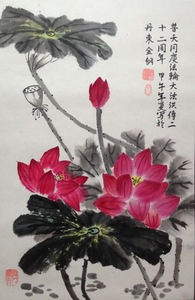 普天同慶法輪大法洪傳二
十二周年 甲午年夏寫於
丹東金鋼